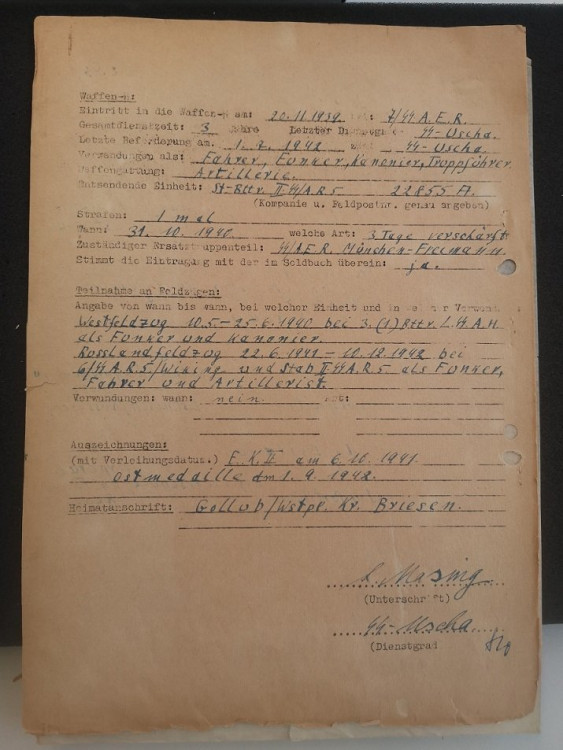 Waffen-ᛋᛋ:
Eintritt in die Waffen-ᛋᛋ am: 20.11.1939. bei: 7/ᛋᛋ A.E.R.
Gesamtdienstzeit: 3 Jahre Letzter Dienstgrad ᛋᛋ-Uscha.
Letzte Beförderung am. 1.7.1942 ᛋᛋ-Uscha.
Verwendungen als: Fahrer, Funker, Kanonier, Truppführer
Waffengattung: Artillerie.
Entsendende Einheit: St-Bttr. II ᛋᛋ A.R 5 22855 A.
(Kompanie u. Feldpostnr. genau angeben)
Strafen: 1 mal
Wann: 31.10.1940. welche Art: 3 Tage verschärft
Zuständiger Ersatztruppenteil: ᛋᛋ A.E.R. München-Freimann.
Stimmt die Eintragung mit der im Soldbuch überein: ja.
Teilnahme an Feldzügen:
Angabe von wann bis wann, bei welcher Einheit und in welcher Verwend.
Westfeldzug 10.5-25.6.1940 bei 3.(1) Bttr. L.H.A.H
als Funker und Kanonier.
Russlandfeldzug 22.6.1941 - 10.12.1942 bei
6/ᛋᛋ A.R.5/Wiking und Stab II ᛋᛋ A.R 5 als Funker,
Fahrer und Artillerist.
Verwundungen: wann: nein. Art:
Auszeichnungen:
(mit Verleihungsdatum.) E.K.II am 6.10.1941.
Ostmedaille am 1.9.1942.
Heimatanschrift: Gollub/Wstpr. Kr. Briesen.
Masing
(Unterschrift)
ᛋᛋ-Uscha
(Dienstgrad